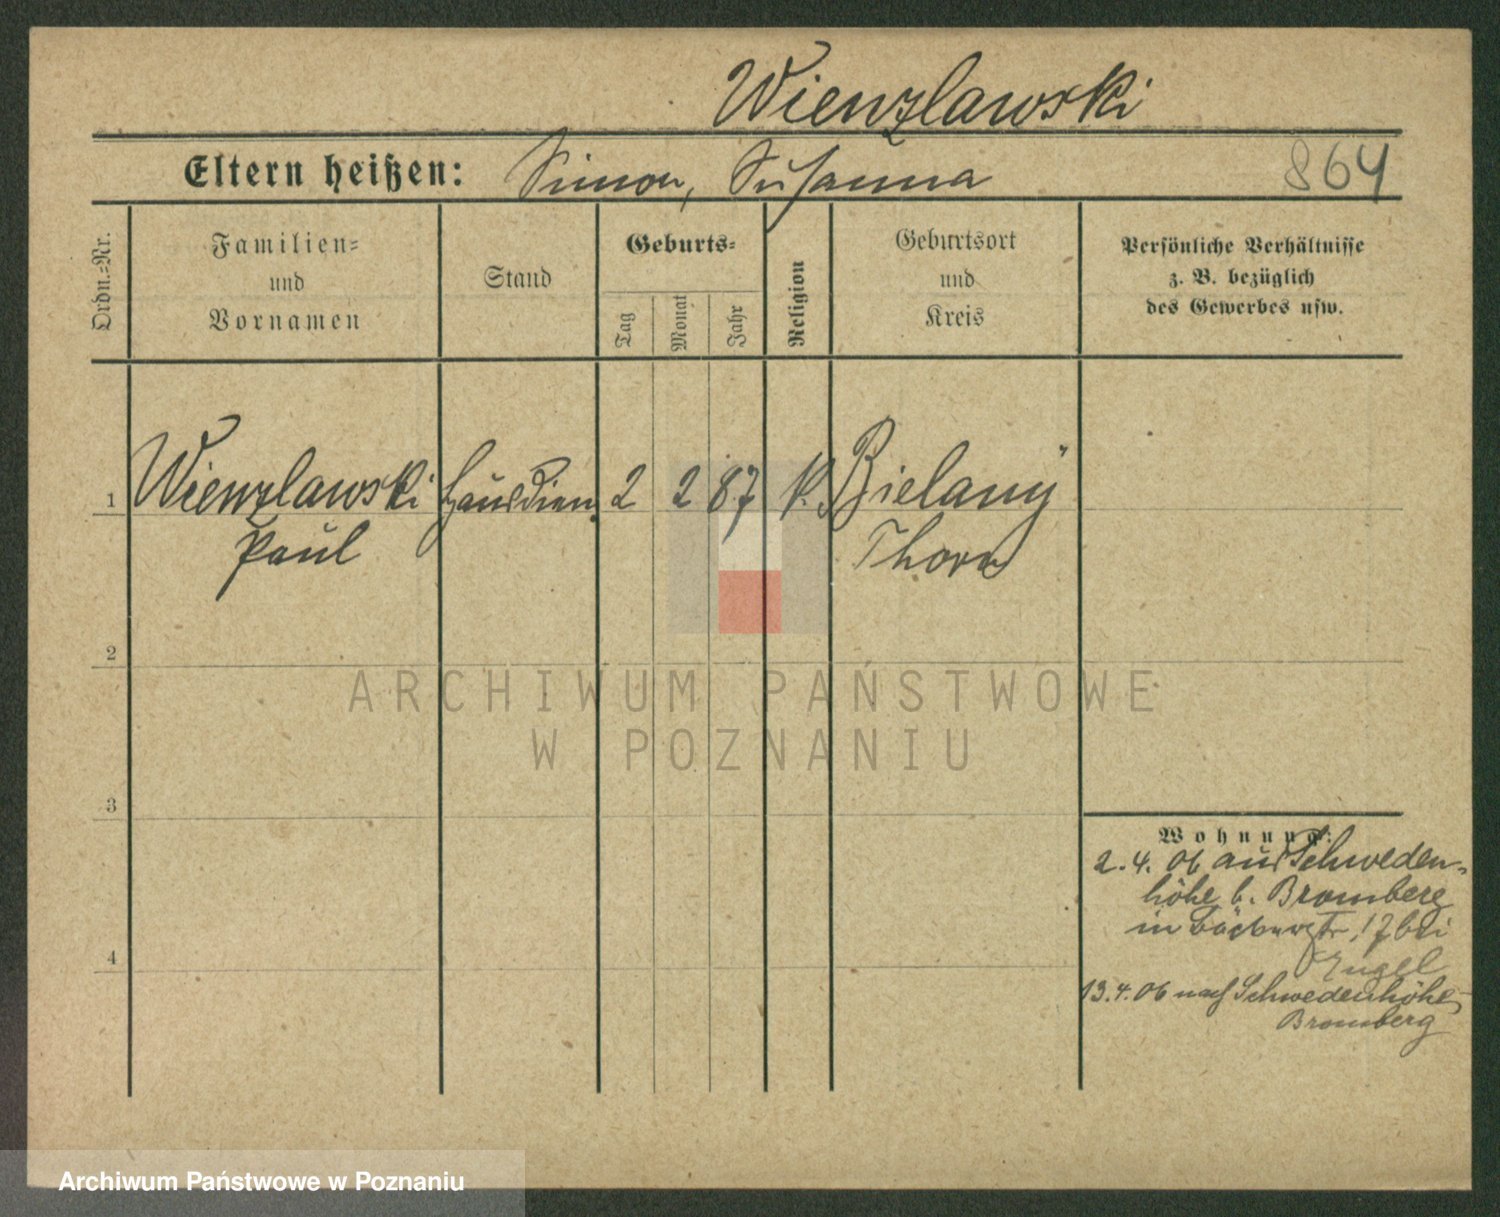 Wienzlawski
Eltern heißen: Simon, Susanna 864
Ordn.=Nr.
Familien=
und
Vornamen
Stand
Geburts=
Tag
Monat
Jahr
Religion
Geburtsort
und
Kreis
Persönliche Verhältnisse
z. B. bezüglich
des Gewerbes usw.
1 Wienzlawski Hausdien. 2 2 87 k. Bielany
Paul Thorn
2
ARCHIWUM PAŃSTWOWE
W POZNANIU
3
Wohnung:
2.4.06 aus Schweden=
höhe b. Bromberg
in Bäckerstr. 17 bei
Engel
4
13.4.06 nach Schwedenhöhe
Bromberg
Archiwum Państwowe w Poznaniu